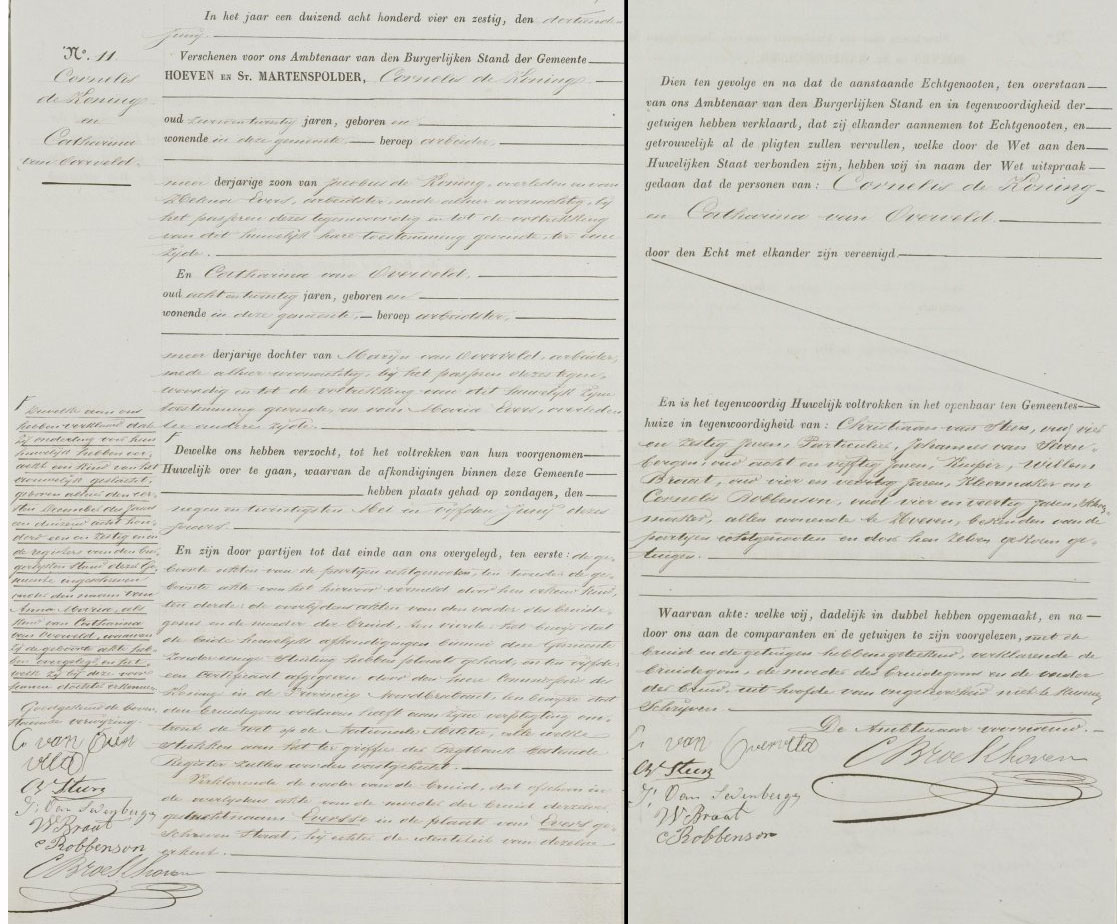 In het jaar een duizend acht honderd vier en zestig, den dertienden
Junij.
No. 11
Cornelis
de Koning
en
Catharina
van Overveld.
Verschenen voor ons Ambtenaar van den Burgerlijken Stand der Gemeente
HOEVEN EN ST. MARTENSPOLDER, Cornelis de Koning
oud jaren, geboren en
wonende in deze gemeente beroep arbeider
meer derjarige zoon van Jacobus de Koning, overleden en van
Helena Evers, arbeidster mede alhier woonachtig, bij
het passeren dezes tegenwoordig en tot de voltrekking
van dit huwelijk hare toestemming gevende, ter eene
zijde.
En Catharina van Overveld.
oud acht en twintig jaren, geboren en
wonende in deze gemeente, beroep arbeidster,
meer derjarige dochter van Marijn van Overveld, arbeider,
mede alhier woonachtig, bij het passeren dezes tegen-
woordig en tot de voltrekking van dit huwelijk zijne
toestemming gevende, en van Maria Evers, overleden
ter andere zijde.
Dewelke ons hebben verzocht, tot het voltrekken van hun voorgenomen
Huwelijk over te gaan, waarvan de afkondigingen binnen deze Gemeente
hebben plaats gehad op zondagen, den
negen en twintigsten Mei en vijfden Junij dezes
jaars.
En zijn door partijen tot dat einde aan ons overgelegd, ten eerste: de ge-
boorte akten van de partijen echtgenooten, ten tweede de ge-
boorte akte van het hiervoor vermeld door hen erkend kind,
ten derde: de overlijdens akten van den vader des bruide-
goms en de moeder der bruid, ten vierde: het bewijs dat
de beide huwelijks afkondigingen binnen deze Gemeente
zonder eenige stuiting hebben plaats gehad, en ten vijfde
een certificaat afgegeven door den Heer Commissaris des
Konings in de Provincie Noordbrabant, ten bewijze dat
den bruidegom voldaan heeft aan zijne verpligting om-
trent de wet op de Nationale Militie, alle welke
stukken aan het ter griffie der Regtbank berustende
Register zullen worden vastgehecht.
Verklarende de vader van de bruid, dat ofschoon in
de overlijdens akte van de moeder der bruid derzelver
geslachtsnaam Eversse in de plaats van Evers ge-
schreven staat, hij echter de identiteit van dezelve
erkent.
Dewelke aan ons
hebben verklaard dat
zij onderling voor hun
huwelijk hebben ver-
wekt een kind van het
vrouwelijk geslacht,
geboren alhier den eer-
sten December des jaars
een duizend acht hon-
derd een en zestig en in
de registers van den bur-
gerlijken stand dezer Ge-
meente ingeschreven
onder den naam van
Anna Maria, als
kind van Catharina
van Overveld, waarvan
zij de geboorte akte heb-
ben overgelegd en het
welk zij bij deze voor
hunne dochter erkennen
Goedgekeurd de boven-
staande verwijzing.
C van Over
veld
CV Steen
W Braat
C Robbenson
C Broekhoven
Dien ten gevolge en na dat de aanstaande Echtgenooten, ten overstaan
van ons Ambtenaar van den Burgerlijken Stand en in tegenwoordigheid der
getuigen hebben verklaard, dat zij elkander aannemen tot Echtgenooten, en
getrouwelijk al de pligten zullen vervullen, welke door de Wet aan den
Huwelijken Staat verbonden zijn, hebben wij in naam der Wet uitspraak
gedaan dat de personen van: Cornelis de Koning
en Catharina van Overveld
door den Echt met elkander zijn vereenigd
En is het tegenwoordig Huwelijk voltrokken in het openbaar ten Gemeentes-
huize in tegenwoordigheid van: Christiaan van Steen, oud vier
en zestig jaren, Particulier, Johannes van Steen-
bergen, oud acht en vijftig jaren, Kuiper, Willem
Braat, oud vier en veertig jaren, Kleermaker en
Cornelis Robbenson, oud vier en veertig jaren, Schoen-
maker, allen wonende te Hoeven, bekenden van de
partijen echtgenooten en door hen zelven gekozen ge-
tuigen.
Waarvan akte: welke wij, dadelijk in dubbel hebben opgemaakt, en na
door ons aan de comparanten en de getuigen te zijn voorgelezen, met de
bruid en de getuigen hebben geteekend, verklarende de
bruidegom, de moeder des bruidegoms en de vader
der bruid, uit hoofde van ongeleerdheid niet te kunnen
schrijven.
De Ambtenaar voornoemd.
C van Overveld
C Broekhoven
CV Steen
W Braat
C Robbenson